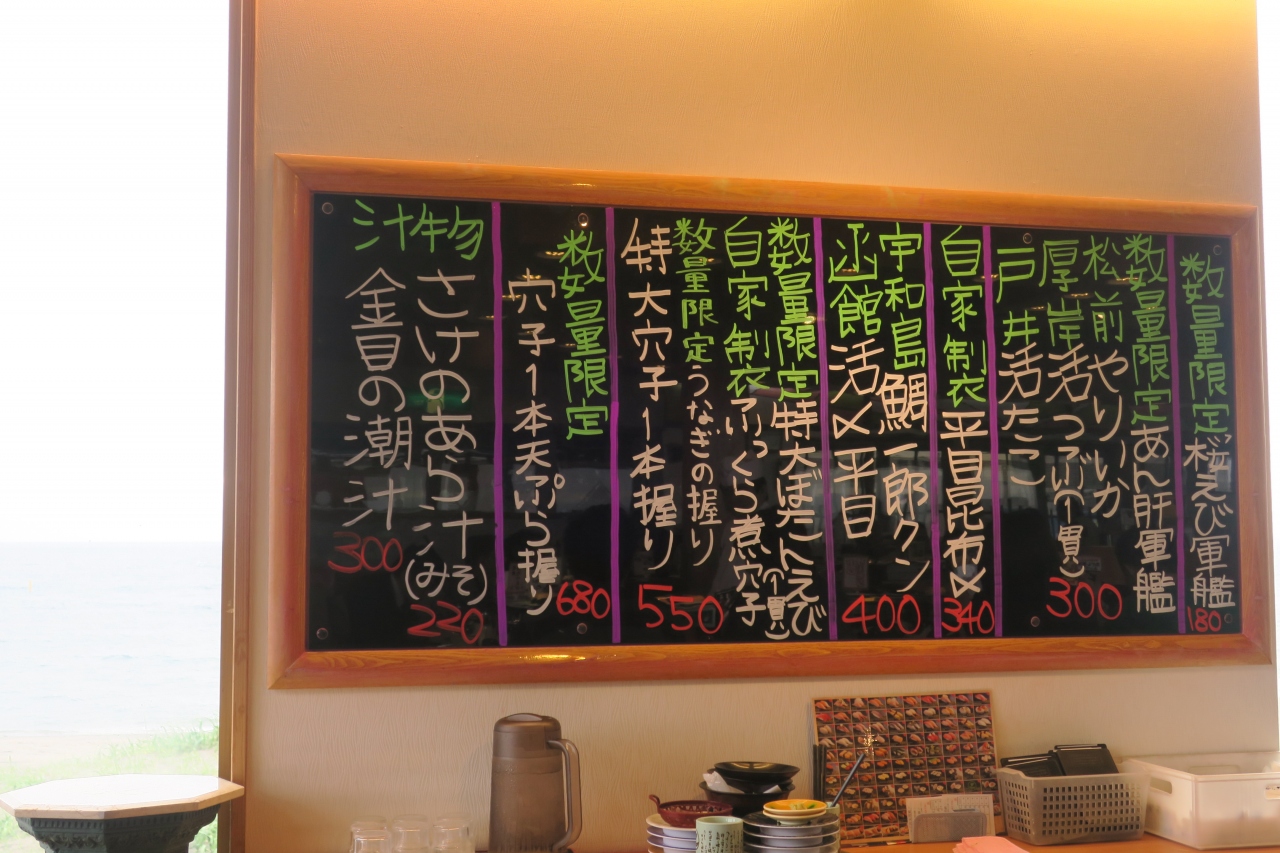 数量限定 桜えび軍艦
180
数量限定 あん肝軍艦
松前 やりいか
厚岸 活つぶ(一貫)
戸井 活たこ
300
自家制衣 平目昆布〆
340
宇和島 鯛一郎クン
函館 活〆平目
400
数量限定 特大ぼたんえび(一貫)
自家制衣 ふっくら煮穴子
数量限定 うなぎの握り
特大穴子1本握り
550
数量限定
穴子1本天ぷら握り
680
汁物
さけのあら汁(みそ)
220
金目の潮汁
300